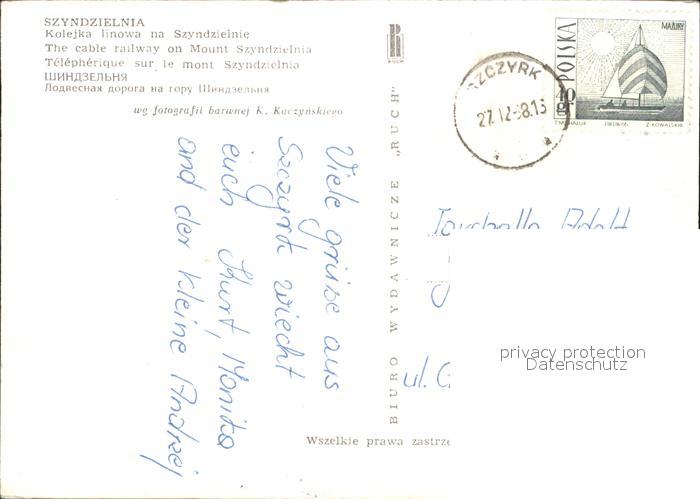 SZYNDZIELNIA
Kolejka linowa na Szyndzielnię
The cable railway on Mount Szyndzielnia
Téléphérique sur le mont Szyndzielnia
ШИНДЗЕЛЬНЯ
Подвесная дорога на гору Шиндзельня
wg fotografii barwnej K. Kaczyńskiego
Viele grüse aus
Szczyrk wiecht
euch Kurt, Monika
und der kleine Andrzej
RUCH
BIURO WYDAWNICZE „RUCH"
SZCZYRK
27.12-68.15
POLSKA
MAZURY
40 gr
Z. KOWALSKI
ul. G
privacy protection
Datenschutz
Wszelkie prawa zastrze